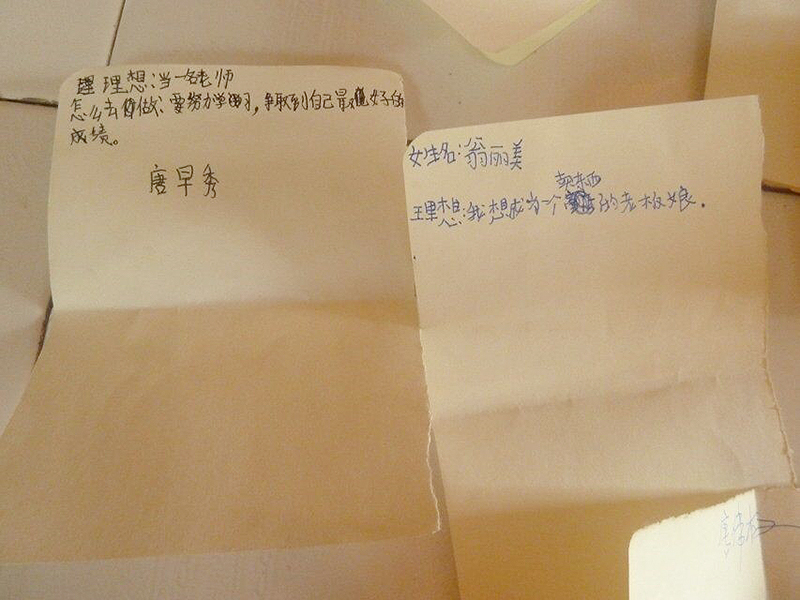 理理想:当一名老师
怎么去做:要努力学习,争取到自己最好的
成绩。
唐早秀
女生名:翁丽美
卖东西
理想:我想成为一个的老板娘.